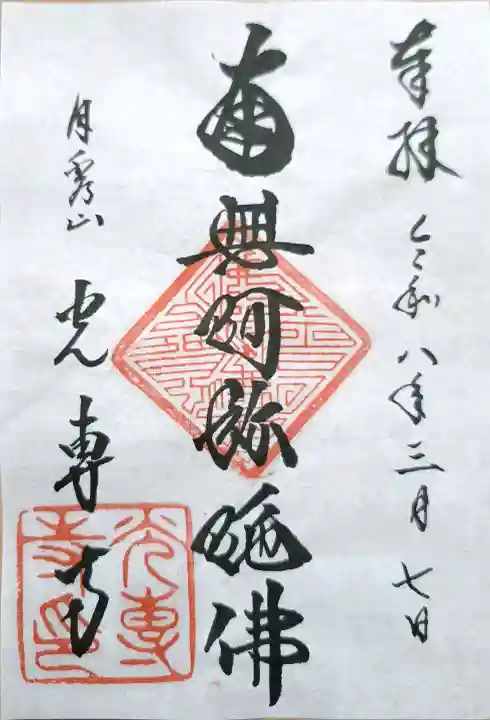 奉拝 令和八年三月七日
南無阿弥陀佛
月秀山 光専寺
光専寺印